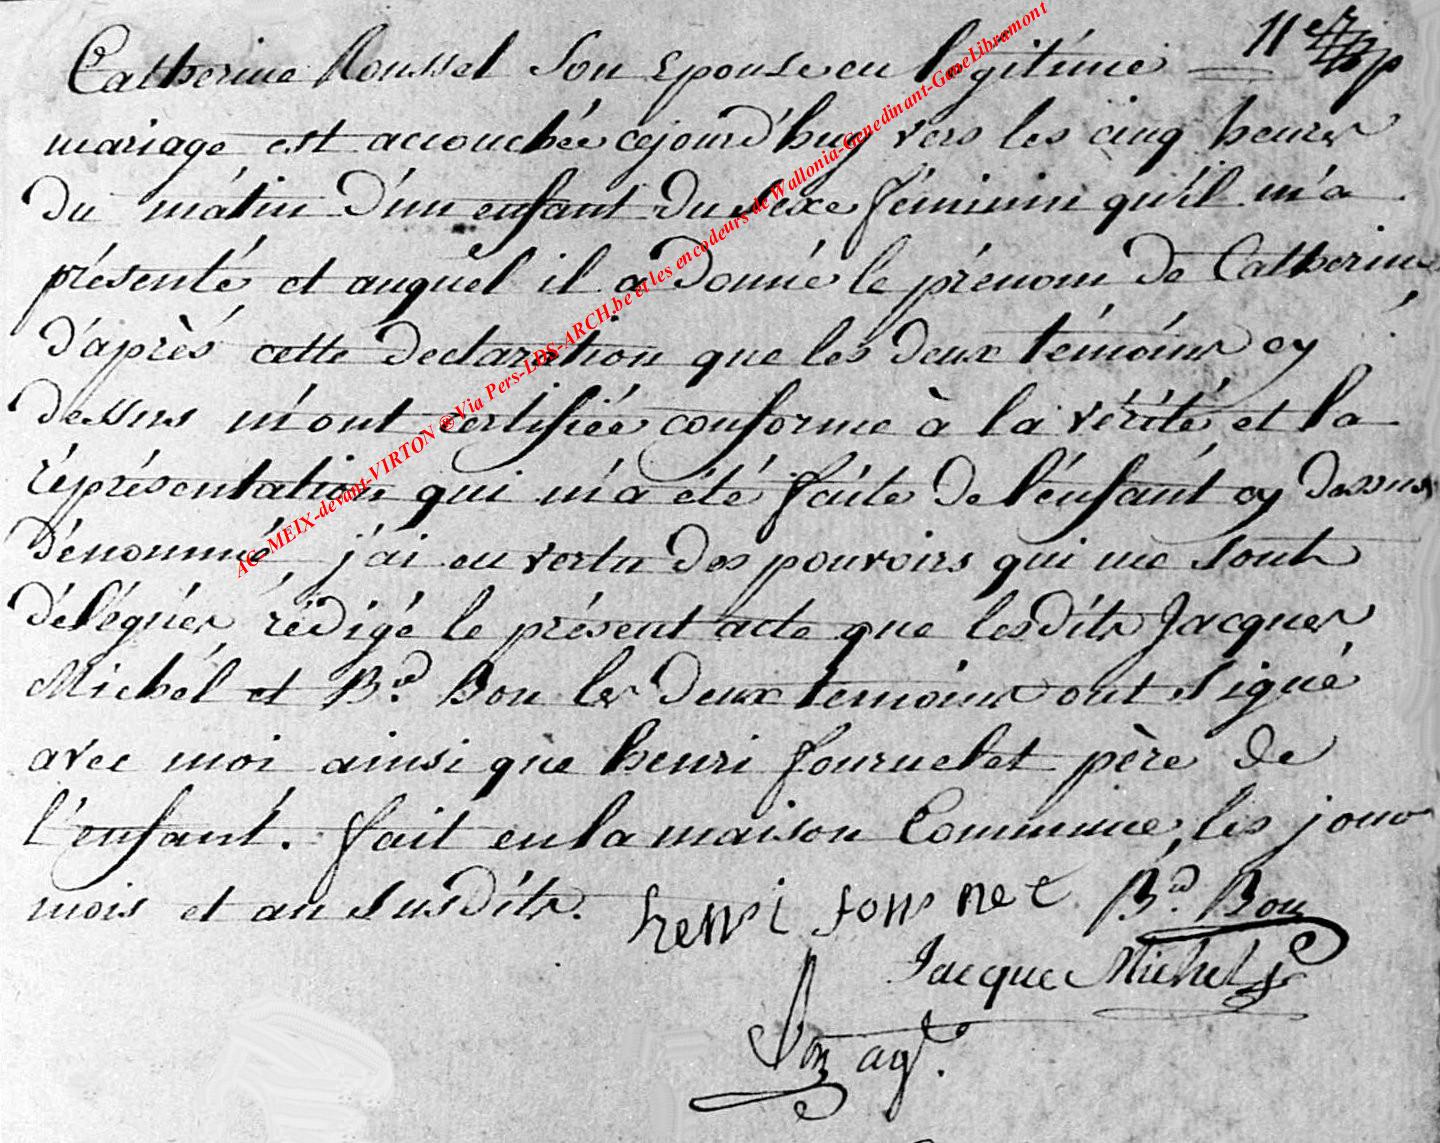 Catherine Roussel son epouse en légitime 11er
mariage est accouchée cejourd'huy vers les cinq heures
du mátin d'un enfant du sexe féminin qu'il m'a
présenté et auquel il a donné le prénom de Catherine
d'après cette déclaration que les deux témoins cy
dessus m'ont certifiée conforme à la vérité, et la
réprésentation qui m'a été faite de l'énfant cy dessus
dénommé, j'ai en vertu des pouvoirs qui me sont
délégués, rédigé le présent acte que lesdits Jacques
Michel et Bd. Bon les deux temoins ont signé
avec moi ainsi que henri fournelet père de
l'enfant. fait en la maison Commune, les jour
mois et an susdits. henri Bd. Bon
Jacque Michel
Bon agt.
AC-MEIX-devant-VIRTON ® Via Pers-LDS-ARCH.be et les encodeurs de Wallonia-Genedinant-GeneLibramont